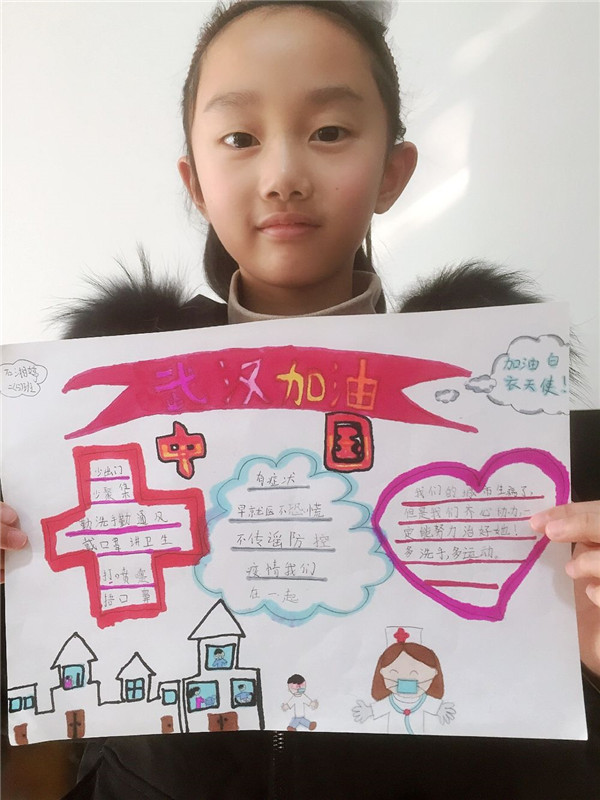 武汉加油
加油白
衣天使!
二(5)班
中国
少出门
少聚集
勤洗手勤通风
戴口罩讲卫生
打喷嚏
捂口鼻
有症状
早社区不恐慌
不传谣防控
疫情我们
在一起
我们的城市生病了,
但是我们齐心协力,一
定能努力治好她!
多洗手,多运动。